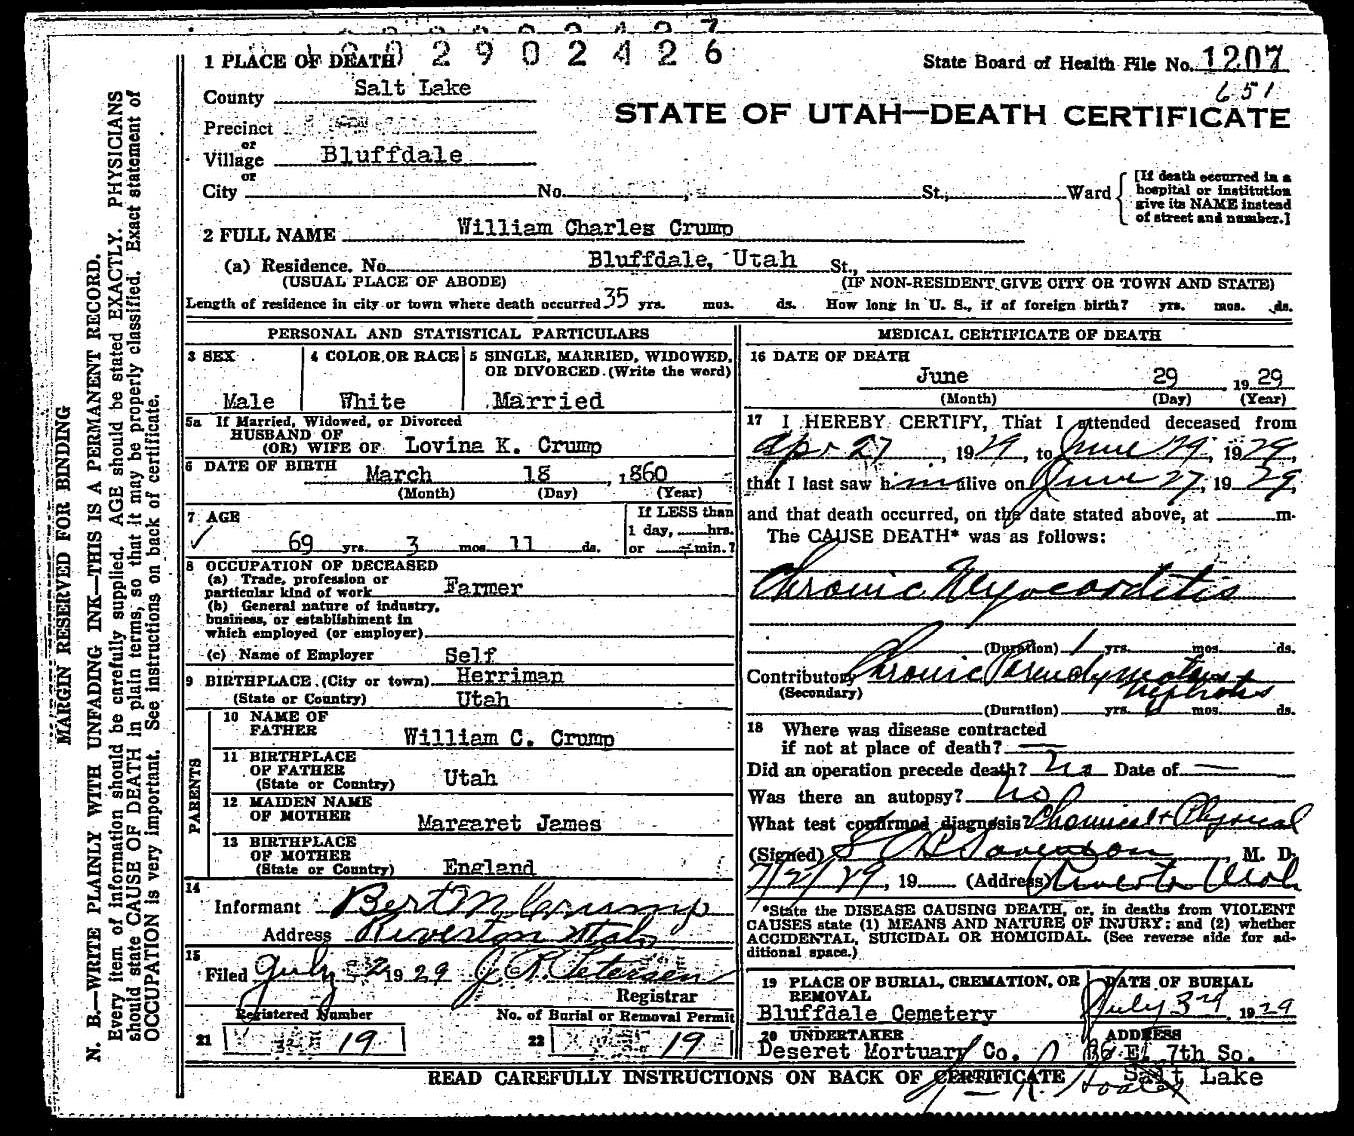 0 0 2 9 0 2 4 2 6
1 PLACE OF DEATH
State Board of Health File No. 1207
651
County Salt Lake
STATE OF UTAH—DEATH CERTIFICATE
Precinct
or
Village Bluffdale
or
City No. St., Ward
[If death occurred in a hospital or institution give its NAME instead of street and number.]
2 FULL NAME William Charles Crump
(a) Residence. No. Bluffdale, Utah St.,
(USUAL PLACE OF ABODE) (IF NON-RESIDENT GIVE CITY OR TOWN AND STATE)
Length of residence in city or town where death occurred 35 yrs. mos. ds. How long in U. S., if of foreign birth? yrs. mos. ds.
MARGIN RESERVED FOR BINDING
N. B.—WRITE PLAINLY WITH UNFADING INK—THIS IS A PERMANENT RECORD.
Every item of information should be carefully supplied. AGE should be stated EXACTLY. PHYSICIANS
should state CAUSE OF DEATH in plain terms, so that it may be properly classified. Exact statement of
OCCUPATION is very important. See instructions on back of certificate.
PERSONAL AND STATISTICAL PARTICULARS
3 SEX 4 COLOR OR RACE 5 SINGLE, MARRIED, WIDOWED,
OR DIVORCED. (Write the word)
Male White Married
5a If Married, Widowed, or Divorced
HUSBAND OF
(OR) WIFE OF Lovina K. Crump
6 DATE OF BIRTH March 18, 1860
(Month) (Day) (Year)
7 AGE If LESS than
1 day, hrs.
69 yrs. 3 mos. 11 ds. or min.?
8 OCCUPATION OF DECEASED
(a) Trade, profession or
particular kind of work Farmer
(b) General nature of industry,
business, or establishment in
which employed (or employer)
(c) Name of Employer Self
9 BIRTHPLACE (City or town) Herriman
(State or Country) Utah
PARENTS
10 NAME OF
FATHER William C. Crump
11 BIRTHPLACE
OF FATHER
(State or Country) Utah
12 MAIDEN NAME
OF MOTHER Margaret James
13 BIRTHPLACE
OF MOTHER
(State or Country) England
14
Informant Bert M Crump
Address Riverton Utah
15
Filed July 2 1929 J. R. Petersen
Registrar
Registered Number No. of Burial or Removal Permit
21 19 22 19
MEDICAL CERTIFICATE OF DEATH
16 DATE OF DEATH
June 29, 1929
(Month) (Day) (Year)
17 I HEREBY CERTIFY, That I attended deceased from
Apr 27, 1929, to June 29, 1929,
that I last saw him alive on June 27, 1929,
and that death occurred, on the date stated above, at m.
The CAUSE DEATH* was as follows:
Chronic Myocarditis
(Duration) 1 yrs. mos. ds.
Contributory Chronic Parenchymatous
(Secondary) Nephritis
(Duration) yrs. 6 mos. ds.
18 Where was disease contracted
if not at place of death? —
Did an operation precede death? No Date of —
Was there an autopsy? No
What test confirmed diagnosis Chemical + Physical
(Signed) M. D.
7/2/29, 19 (Address) Riverton Utah
*State the DISEASE CAUSING DEATH, or, in deaths from VIOLENT
CAUSES state (1) MEANS AND NATURE OF INJURY; and (2) whether
ACCIDENTAL, SUICIDAL OR HOMICIDAL. (See reverse side for additional space.)
19 PLACE OF BURIAL, CREMATION, OR
REMOVAL
Bluffdale Cemetery
DATE OF BURIAL
July 3rd, 1929
20 UNDERTAKER
Deseret Mortuary Co.
ADDRESS
36 E. 7th So.
Salt Lake
READ CAREFULLY INSTRUCTIONS ON BACK OF CERTIFICATE